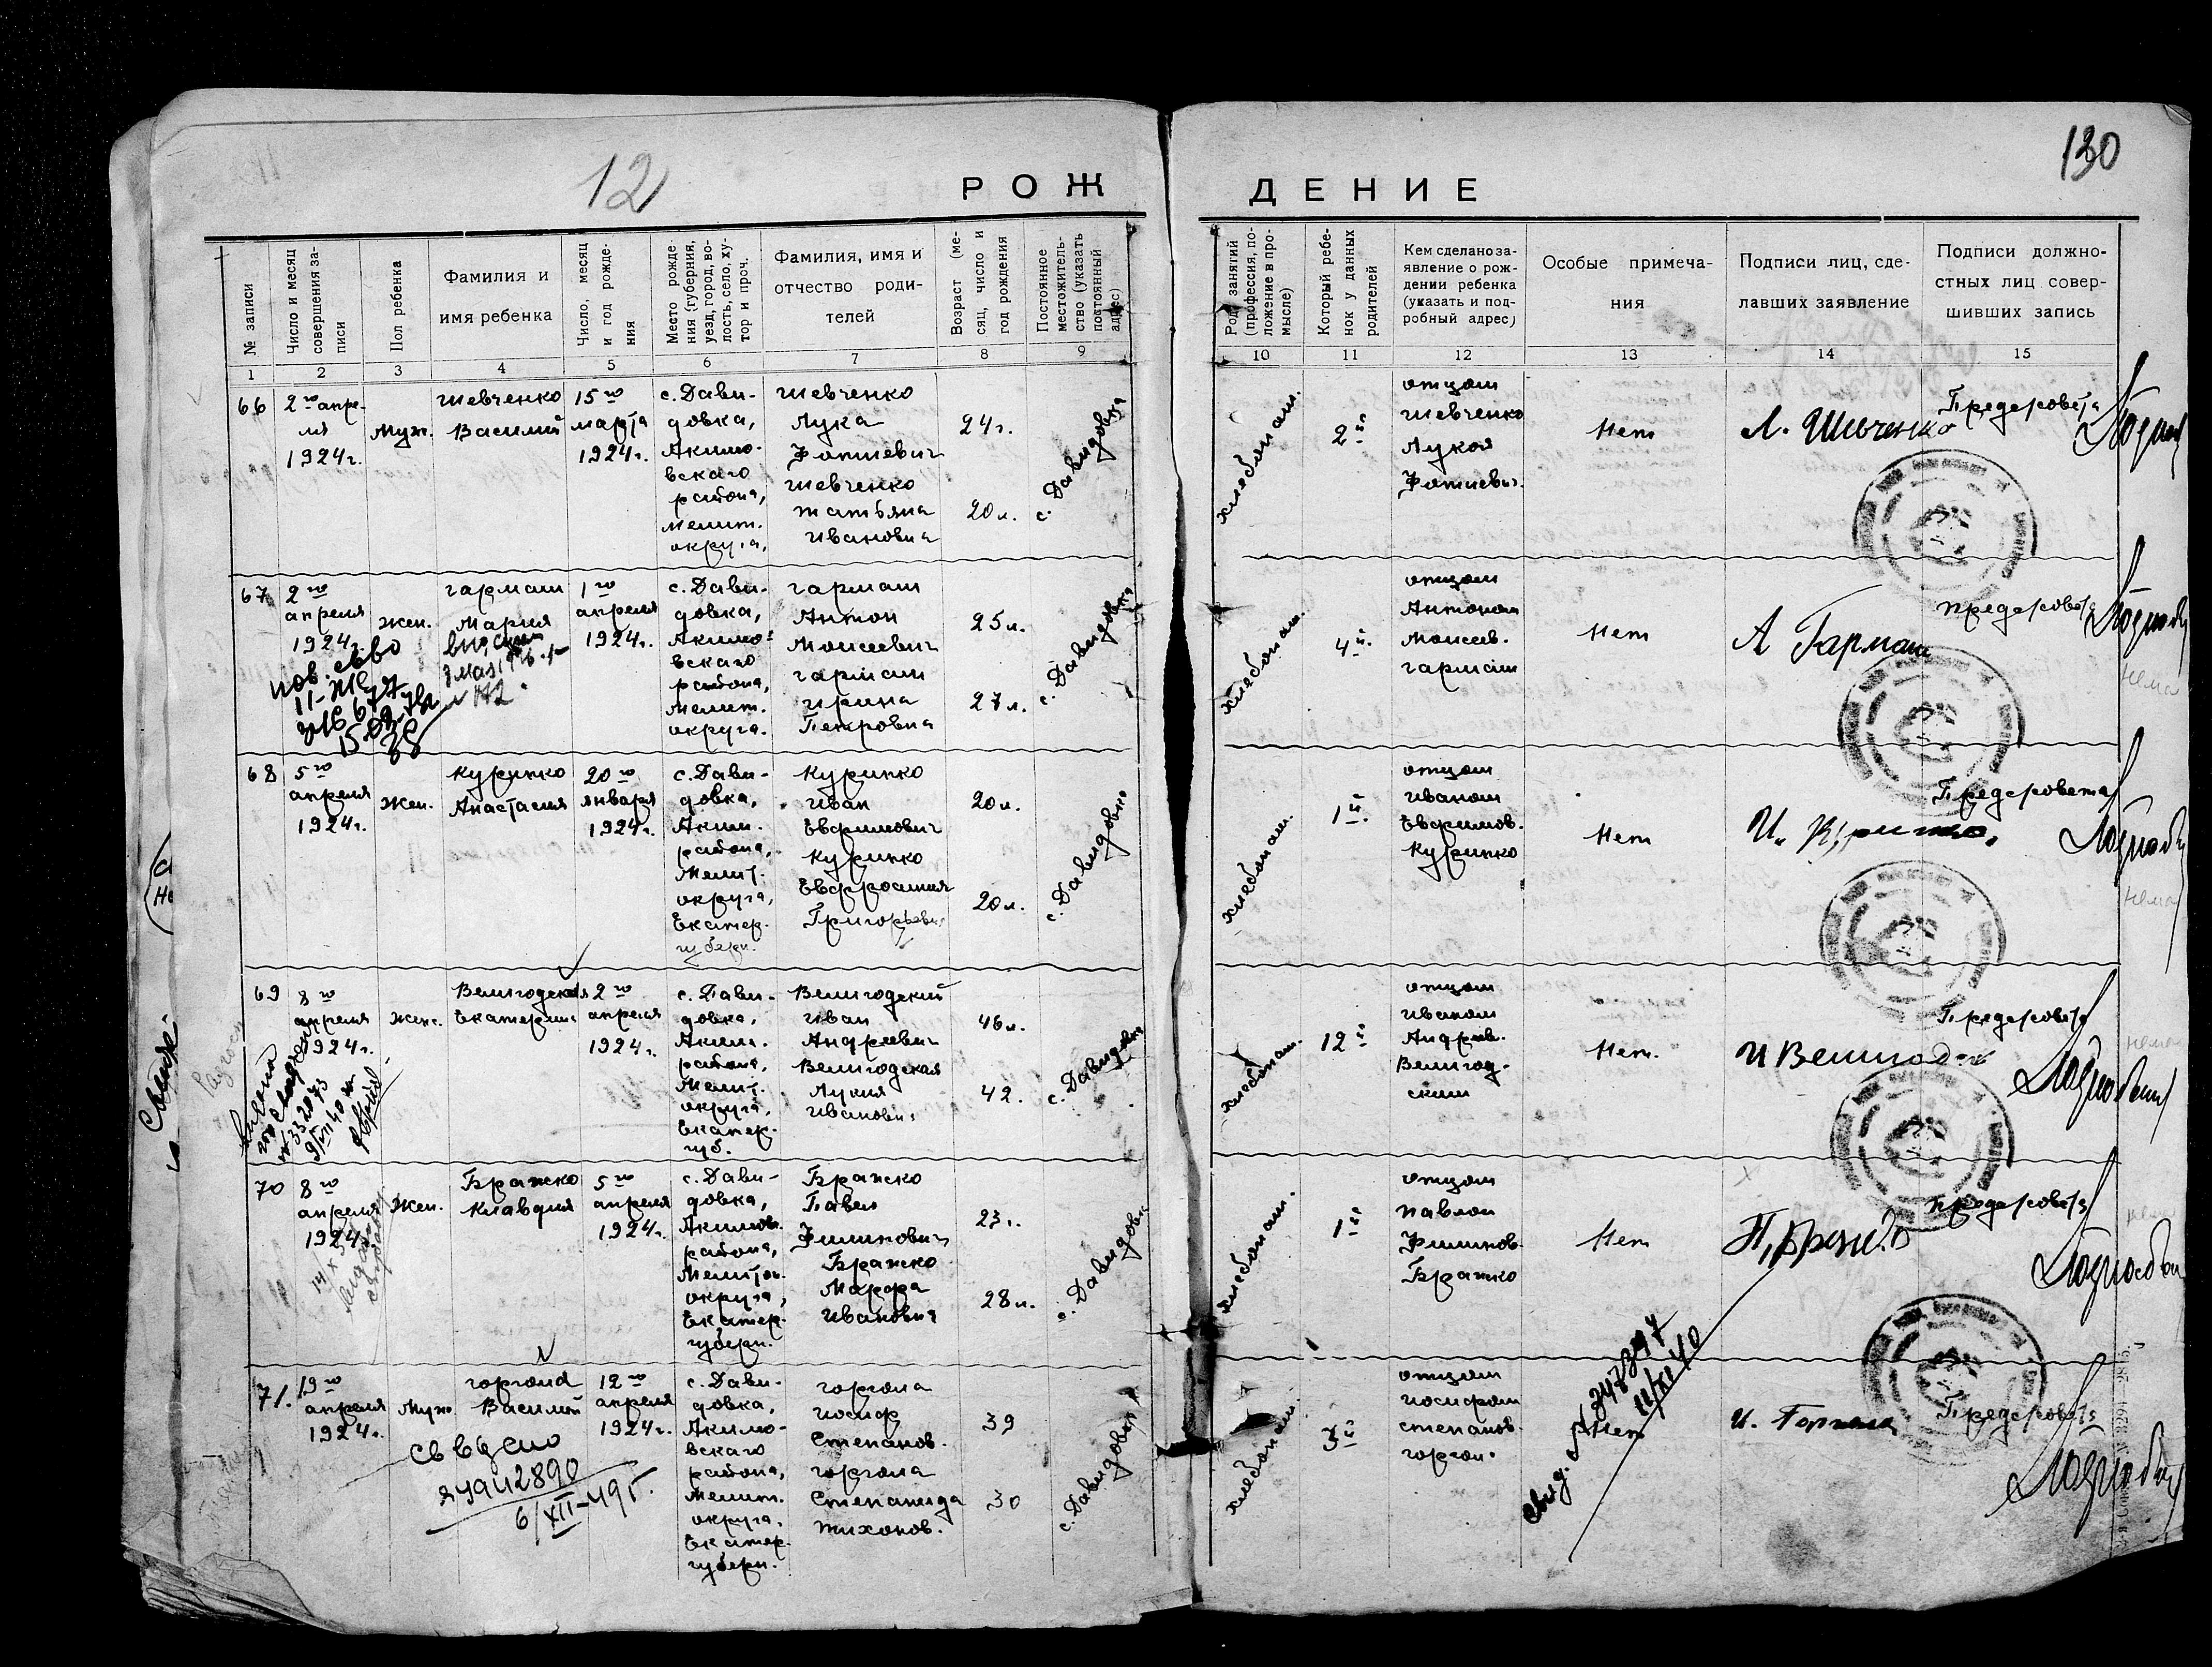 12
130
РОЖДЕНИЕ
№ записи
Число и месяц совершения записи
Пол ребенка
Фамилия и имя ребенка
Число, месяц и год рождения
Место рождения (губерния, уезд, город, волость, село, хутор и проч.
Фамилия, имя и отчество родителей
Возраст (месяц, число и год рождения
Постоянное местожительство (указать постоянный адрес)
Род занятий (профессия, положение в промысле)
Который ребенок у данных родителей
Кем сделано заявление о рождении ребенка (указать и подробный адрес)
Особые примечания
Подписи лиц, сделавших заявление
Подписи должностных лиц совершивших запись
1 2 3 4 5 6 7 8 9 10 11 12 13 14 15
66
2го апреля
1924г.
Муж.
Шевченко
Василий
15го
марта
1924г.
с. Дави-
довка,
Акимо-
вскаго
района,
Мелит.
округа,
Шевченко
Лука
Фотиевич
Шевченко
Татьяна
Ивановна
24г.
20л.
с. Давидовка
хлебопаш.
2й
отцом
Шевченко
Лукой
Фотиевич.
Нет
Л. Шевченко
Предсровета
67
2го
апреля
1924г.
Жен.
Гармаш
Мария
1го
апреля
1924г.
с. Дави-
довка,
Акимо-
вскаго
района,
Мелит.
округа.
Гармаш
Антон
Моисеевич
Гармаш
Ирина
Петровна
25л.
27л.
с. Давидовка
хлебопаш.
4й
отцом
Антоном
Моисеев.
Гармаш
Нет
А Гармаш
Предсровета
68
5го
апреля
1924г.
Жен.
Курипко
Анастасия
20го
января
1924г.
с. Дави-
довка,
Аким.
района,
Мелит.
округа,
Екатер.
губерн.
Курипко
Иван
Евфимович
Курипко
Евфросиния
Григорьевн.
20л.
20л.
с. Давидовка
хлебопаш.
1й
отцом
Иваном
Евфимов.
Курипко
Нет
Предсровета
69
8го
апреля
1924г.
Жен.
Велигодская
Екатерина
2го
апреля
1924г.
с. Дави-
довка,
Аким.
района,
Мелит.
округа,
Екатер.
губ.
Велигодский
Иван
Андреевич
Велигодская
Лукия
Ивановна
46л.
42.
с. Давидовка
хлебопаш.
12й
отцом
Иваном
Андреев.
Велигод-
ским
Нет.
Предсровета
70
8го
апреля
1924г.
Жен.
Бражко
Клавдия
5го
апреля
1924г.
с. Дави-
довка,
Акимов.
района,
Мелитоп.
округа,
Екатер.
губерн.
Бражко
Павел
Филипович
Бражко
Марфа
Ивановна
23г.
28л.
с. Давидовк
хлебопаш.
1й
отцом
Павлом
Филипов.
Бражко
Нет
Предсровета
71.
19го
апреля
1924г.
Муж.
Горгола
Василий
12го
апреля
1924г.
с. Дави-
довка,
Акимо-
вскаго
района,
Мелит.
округа.
Екатер.
губерн.
Горгола
Иосиф
Степанов.
Горгола
Степанида
Тихонов.
39
30
с. Давидовка
хлебопаш.
3й
отцом
Иосифом
Степанов.
Горгол.
Нет
И. Горгола
Предсровета